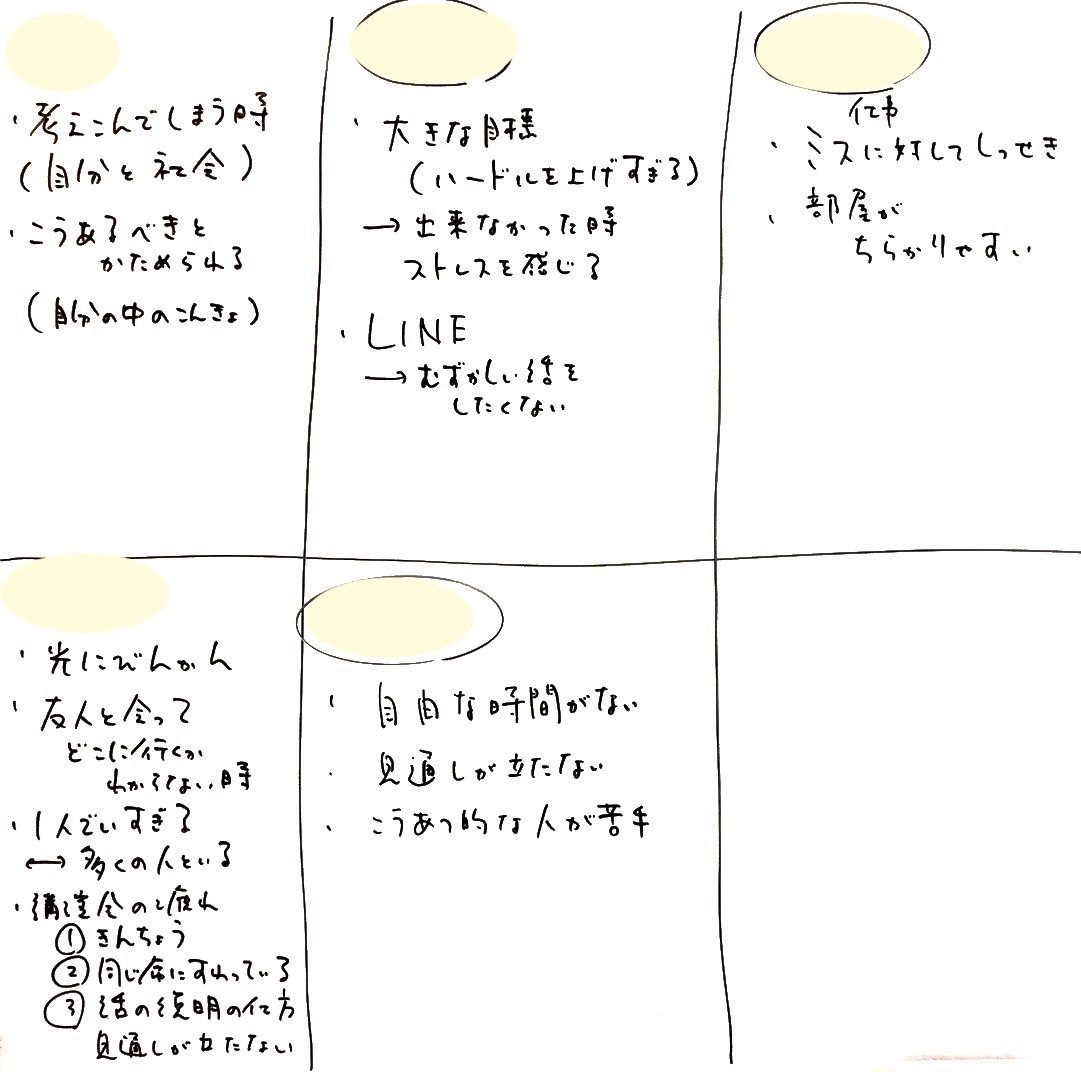 ・考えこんでしまう時
(自分と社会)
・こうあるべきと
かためられる
(自分の中のこんきょ)
・大きな目標
(ハードルを上げすぎる)
→出来なかった時
ストレスを感じる
・LINE
→むずかしい話を
したくない
仕事
・ミスに対してしっせき
・部屋が
ちらかりやすい
・光にびんかん
・友人と会って
どこに行くか
わからない時
・1人でいすぎる
↔多くの人といる
・講演会の疲れ
①きんちょう
②同じ席にすわっている
③話の説明の仕方
見通しが立たない
・自由な時間がない
・見通しが立たない
・こうあつ的な人が苦手